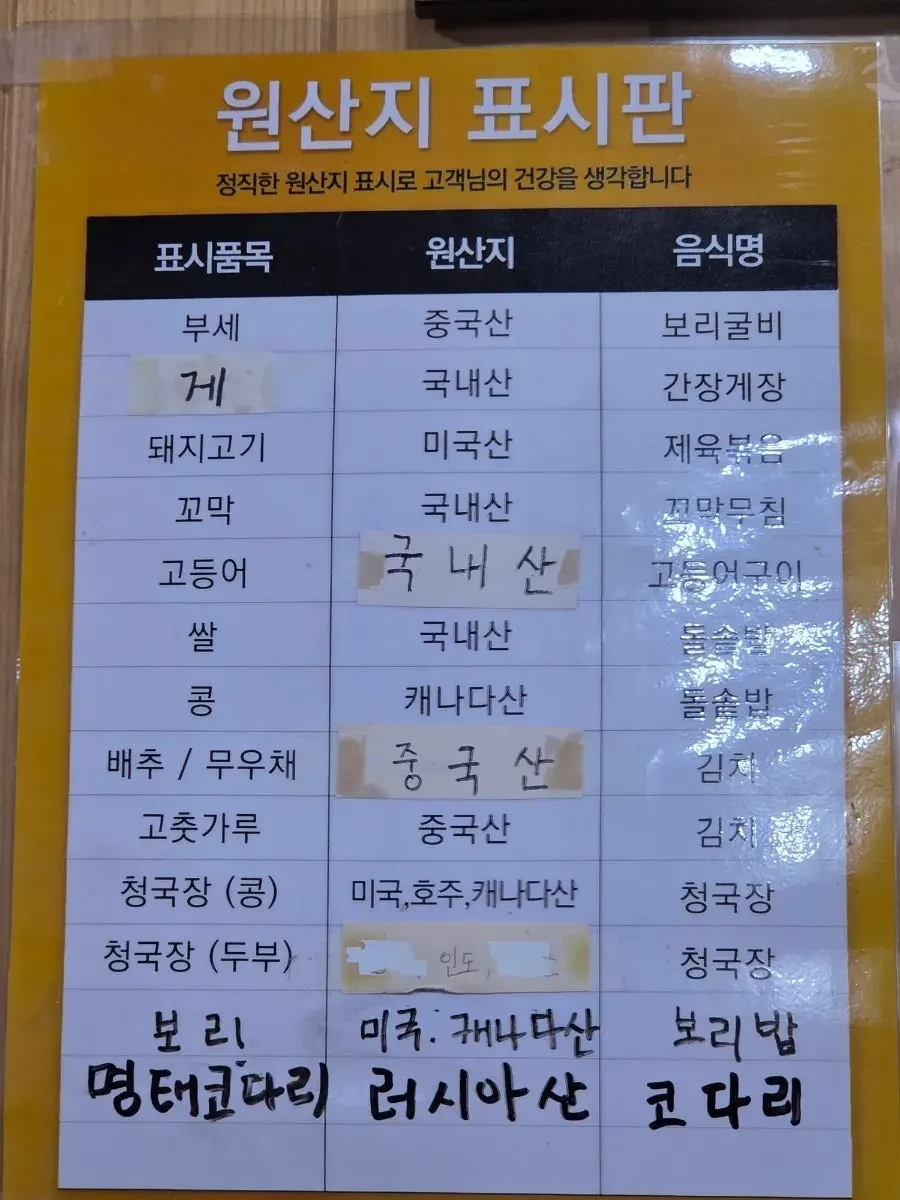 원산지 표시판
정직한 원산지 표시로 고객님의 건강을 생각합니다
표시품목 원산지 음식명
부세 중국산 보리굴비
게 국내산 간장게장
돼지고기 미국산 제육볶음
꼬막 국내산 꼬막무침
고등어 국내산 고등어구이
쌀 국내산 돌솥밥
콩 캐나다산 돌솥밥
배추 / 무우채 중국산 김치
고춧가루 중국산 김치
청국장 (콩) 미국,호주,캐나다산 청국장
청국장 (두부) 인도, 청국장
보리 미국. 캐나다산 보리밥
명태코다리 러시아산 코다리